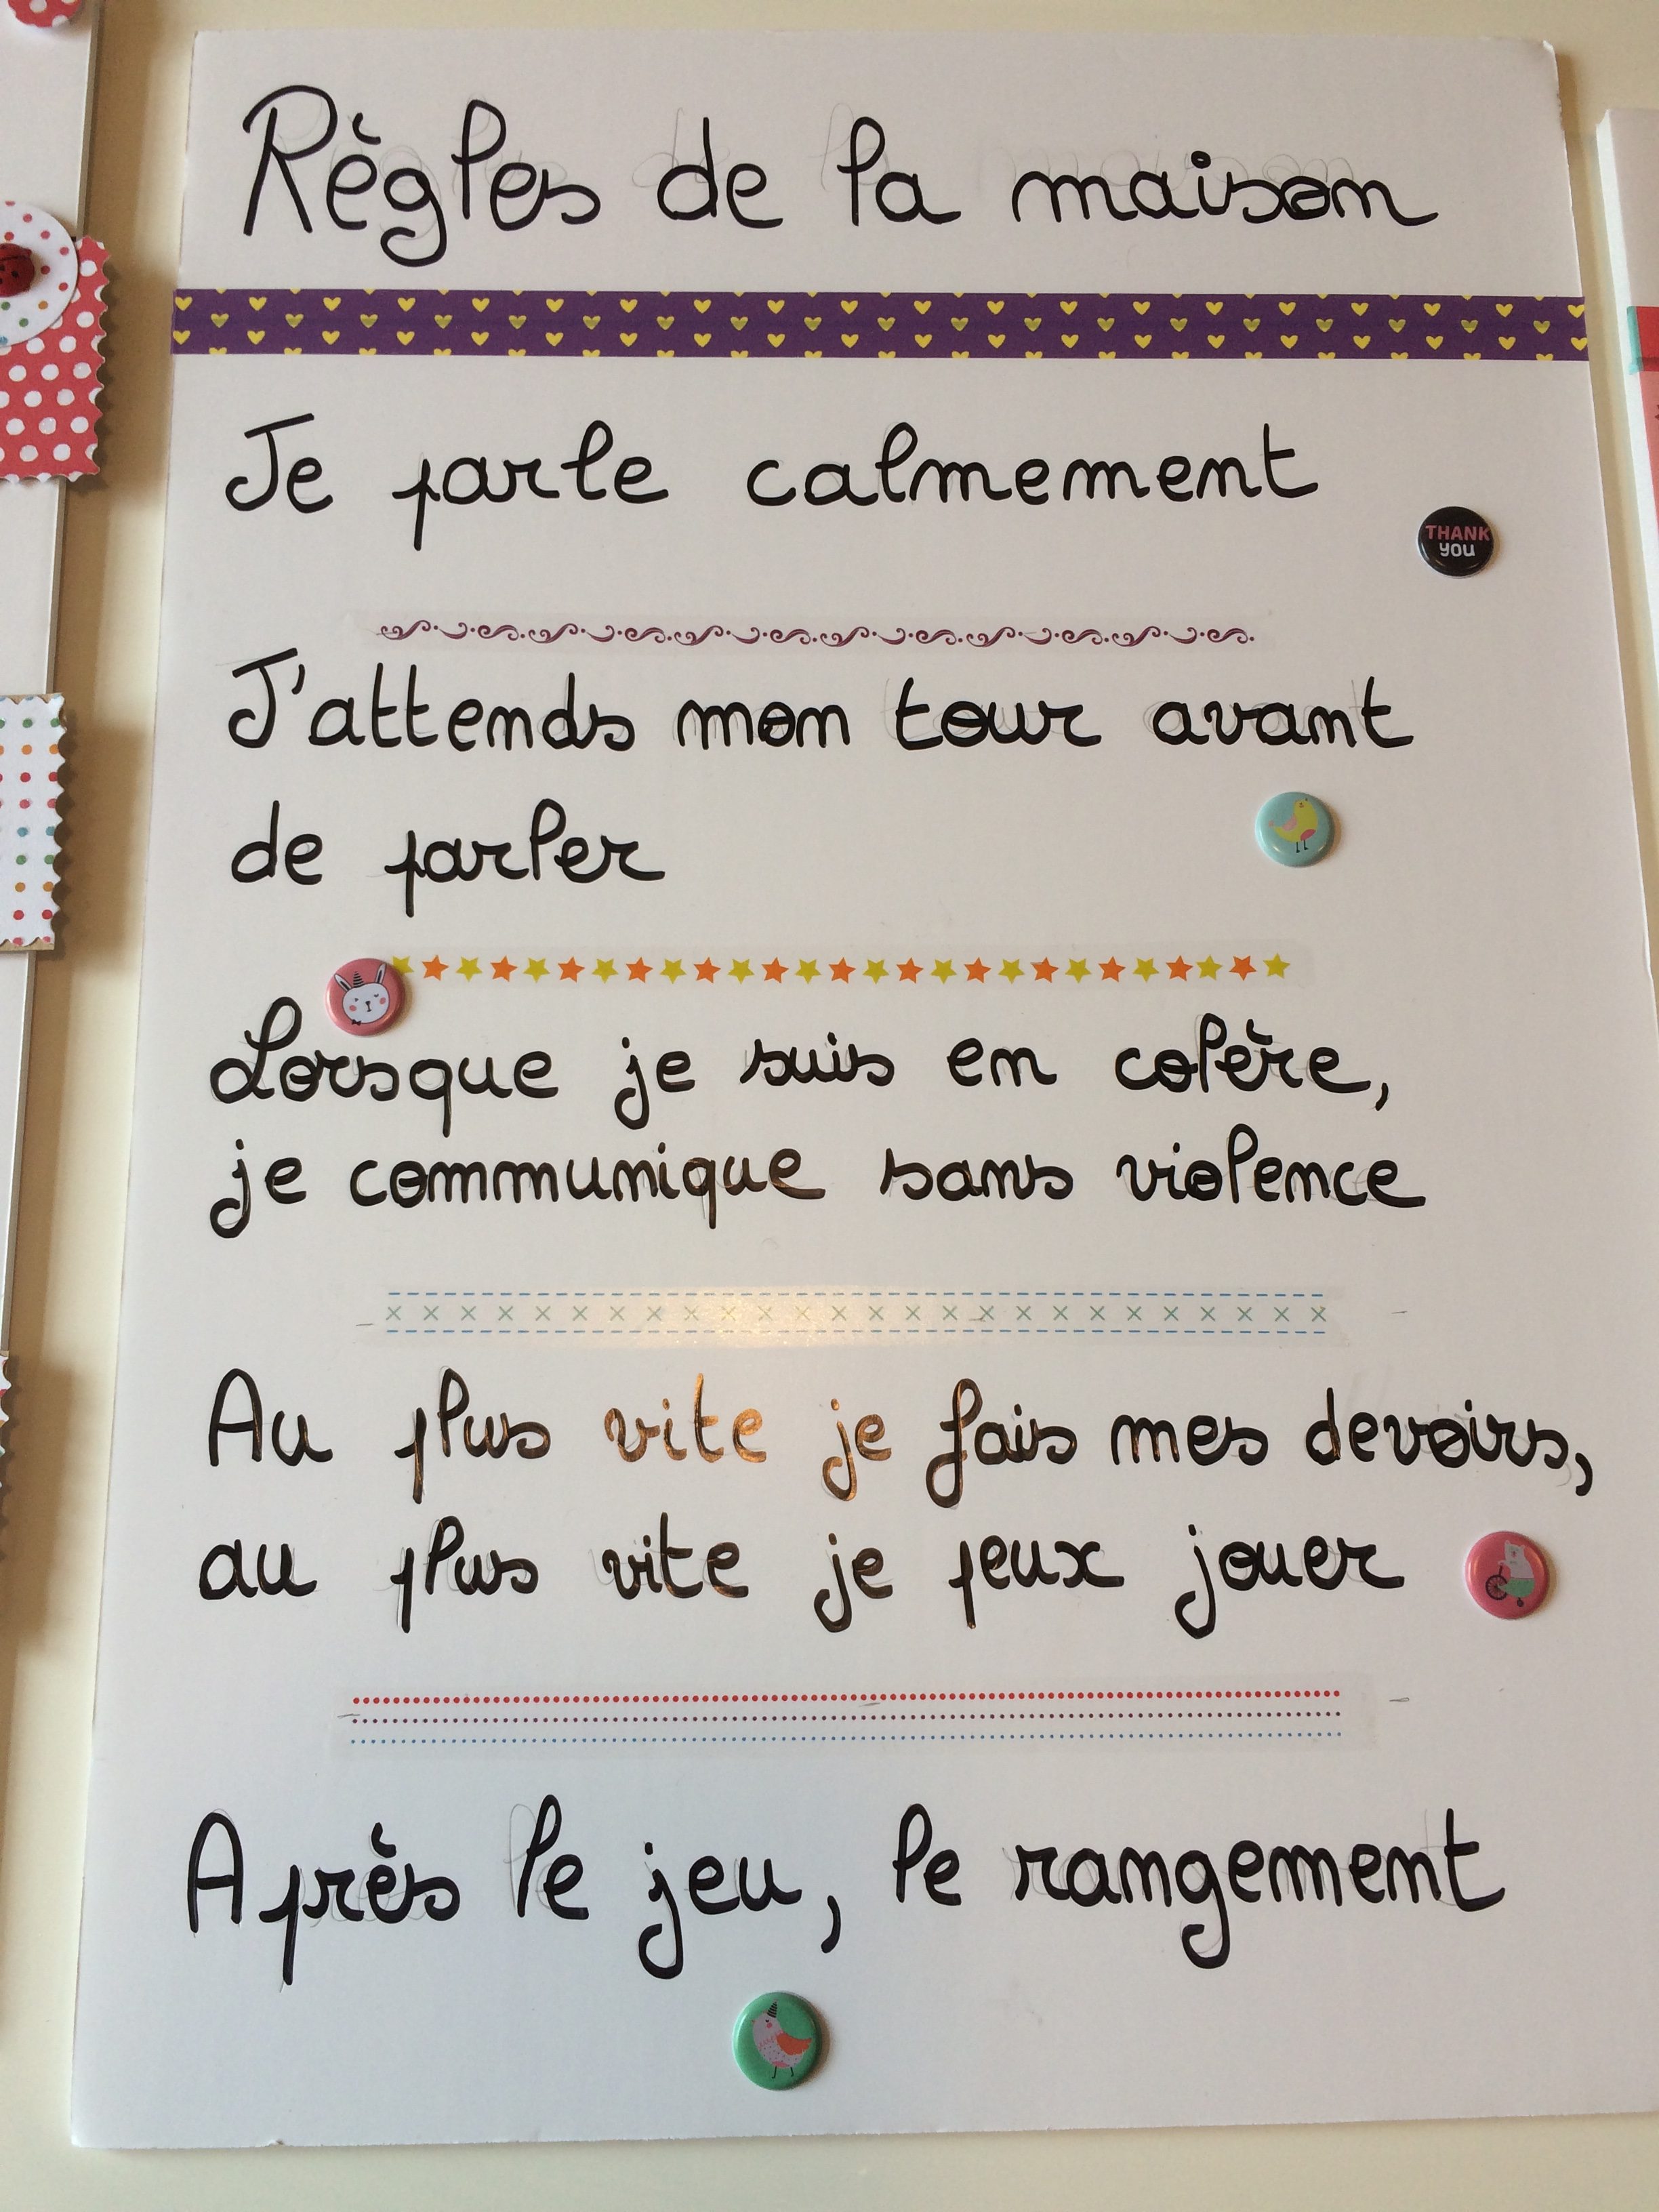 Règles de la maison
Je parle calmement
THANK
you
J'attends mon tour avant
de parler
Lorsque je suis en colère,
je communique sans violence
Au plus vite je fais mes devoirs,
au plus vite je peux jouer
Après le jeu, le rangement